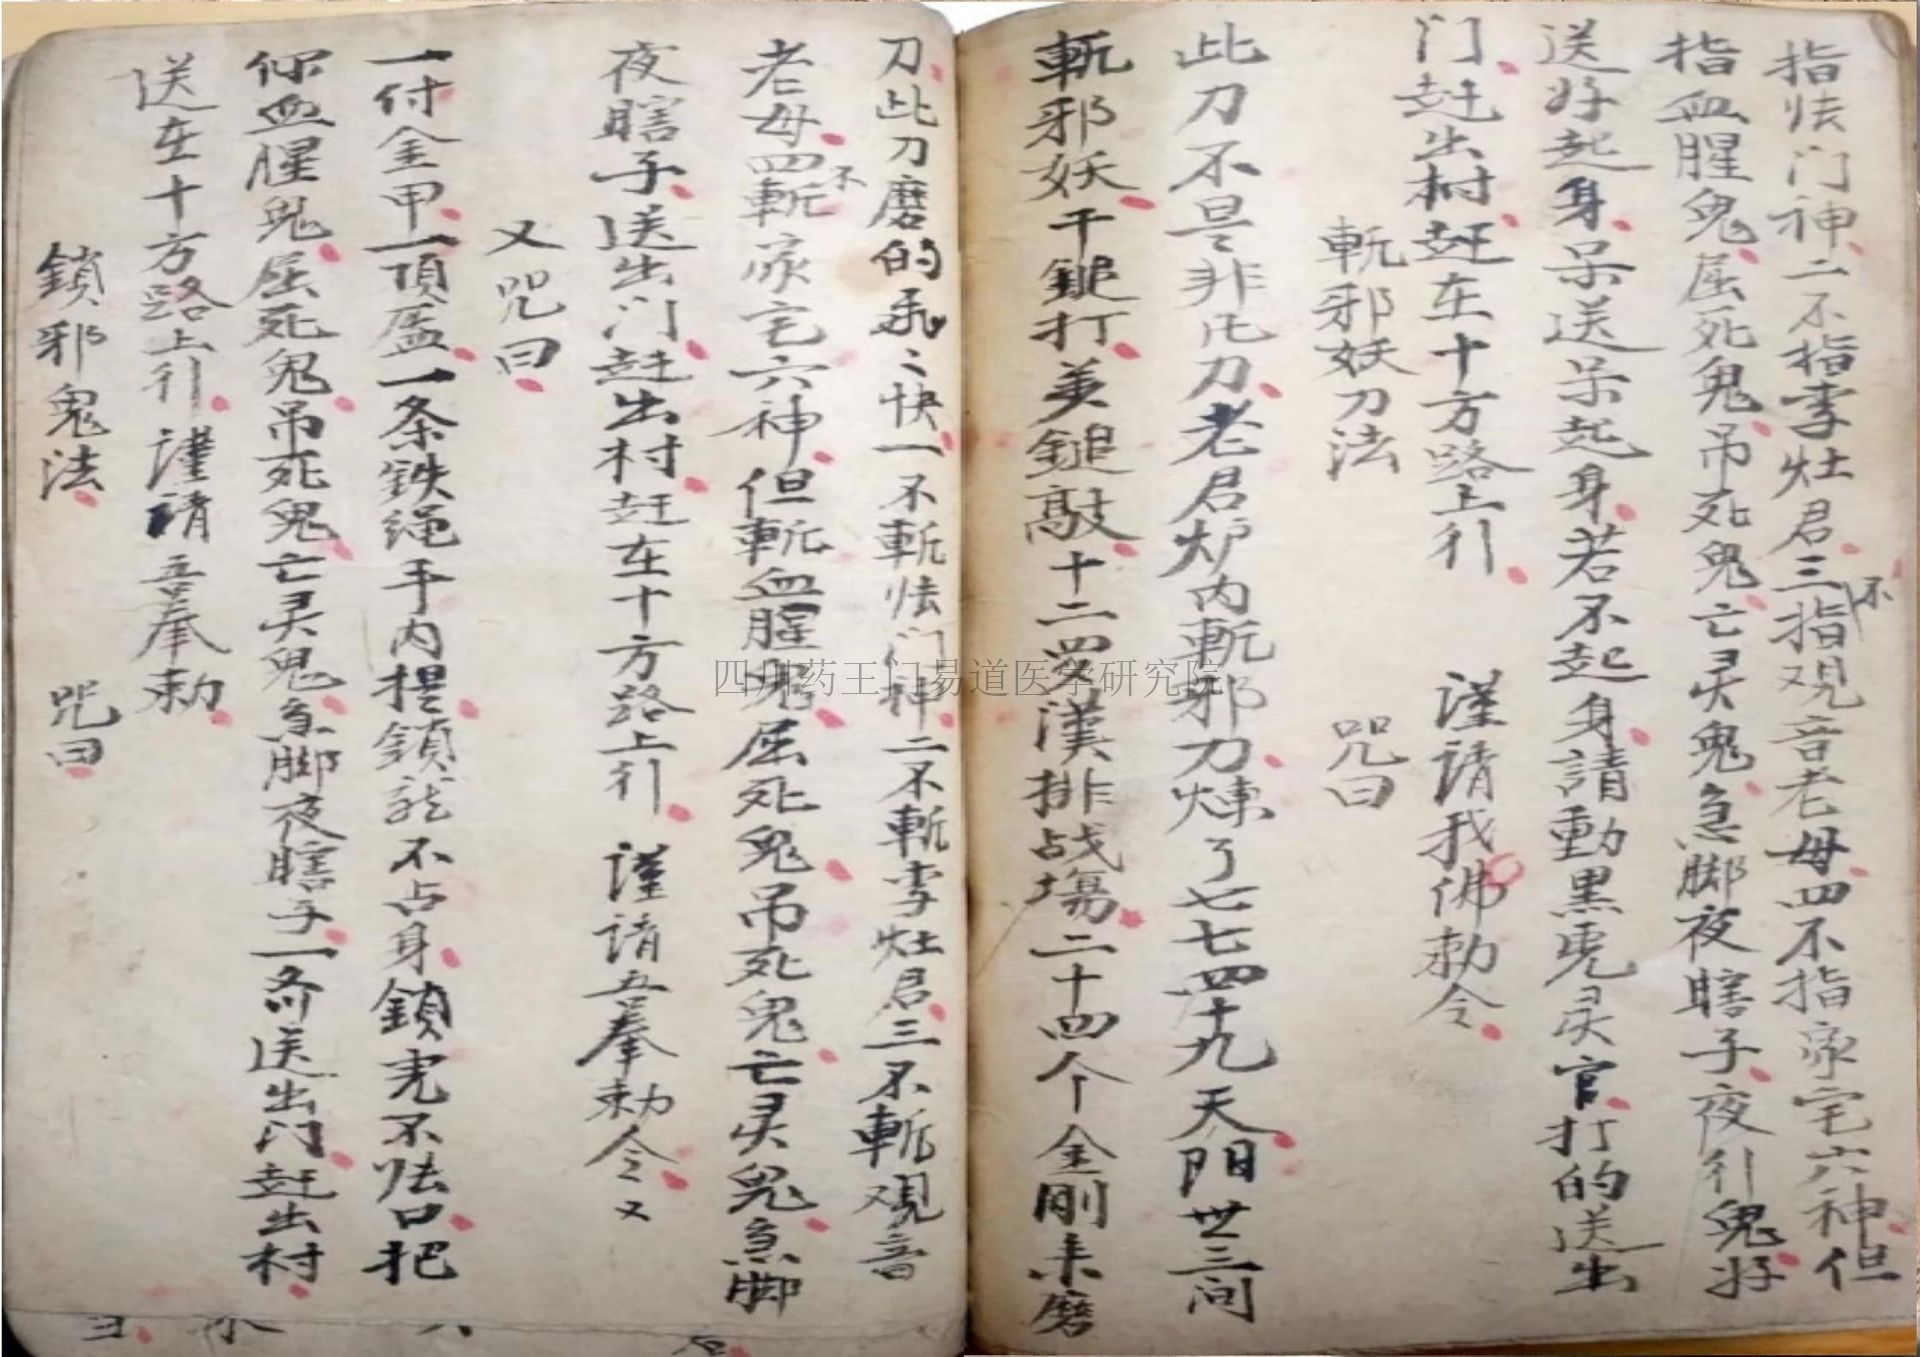 指怯门神二不指李灶君三不指观音老母四不指家宅六神但
指血腥鬼屈死鬼吊死鬼亡灵鬼急脚夜瞎子夜行鬼好
送好起身呆送呆起身若不起身請動黑虎灵官打的送出
门赶出村赶在十方路上行 谨请我佛勅令
斬邪妖刀法 咒曰
此刀不是非凡刀老君炉内斬邪刀煉了七七四十九天阳世三间
斬邪妖千鎚打 鎚敲十二四 漢排战場二十四个金刚来磨
刀此刀磨的 〻快一不斬怯门神二不斬李灶君三不斬观音
老母四不斬家宅六神但斬血腥鬼屈死鬼吊死鬼亡灵鬼急脚
夜瞎子送出门赶出村赶在十方路上行 谨请 奉勅令又
又咒曰
一付金甲一頂盔一条铁绳手内提鎖 不占身鎖 不怯口把
你血腥鬼屈死鬼吊死鬼亡灵鬼急脚夜瞎子一齐送出门赶出村
送在十方路上行 谨请 奉勅
鎖邪鬼法 咒曰
四川药王门易道医学研究院